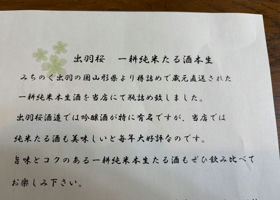 出羽桜　一耕純米たる酒本生
みちのく出羽の国山形県より樽詰めで蔵元直送された
一耕純米本生酒を当店にて瓶詰め致しました。
出羽桜酒造では吟醸酒が特に有名ですが、当店では
純米たる酒も美味しいと毎年大好評なのです。
旨味とコクのある一耕純米本生たる酒もぜひ飲み比べて
お楽しみ下さい。